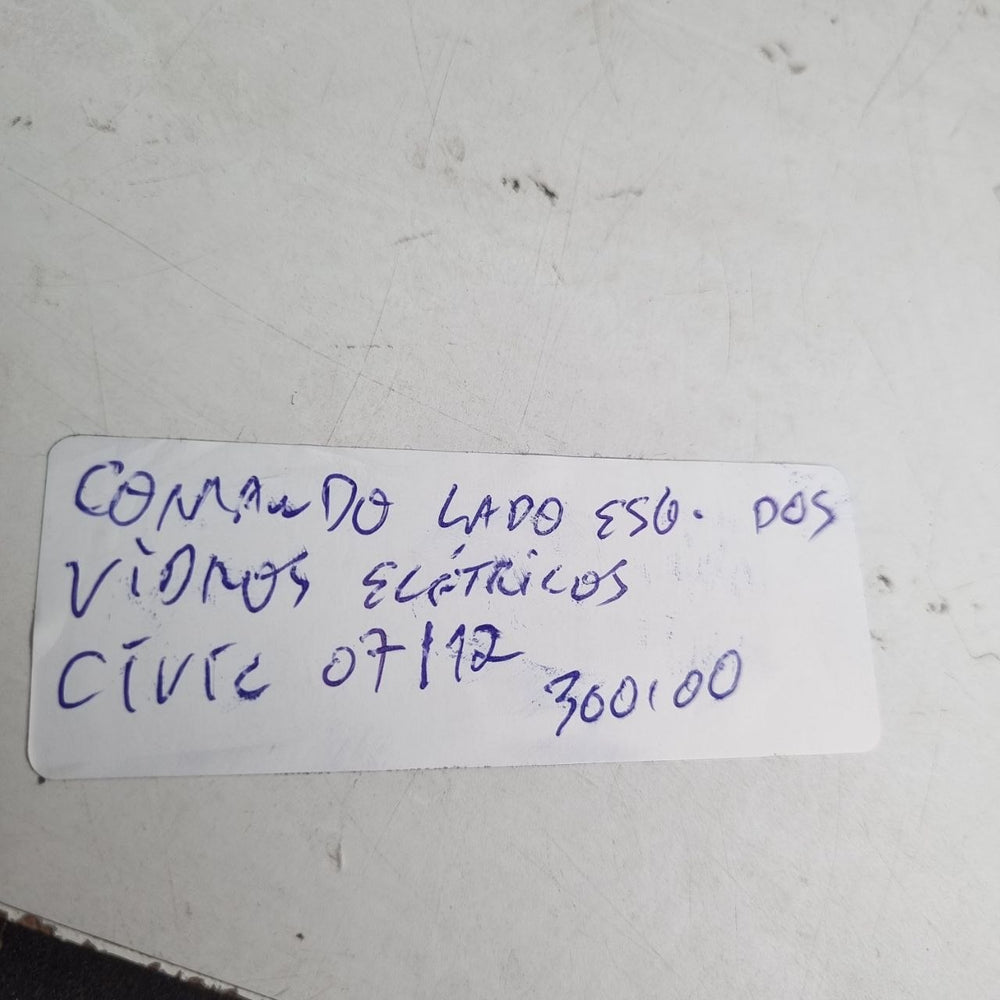 COMANDO LADO ESQ. DOS
VIDROS ELÉTRICOS
CIVIC 07/12
300,00